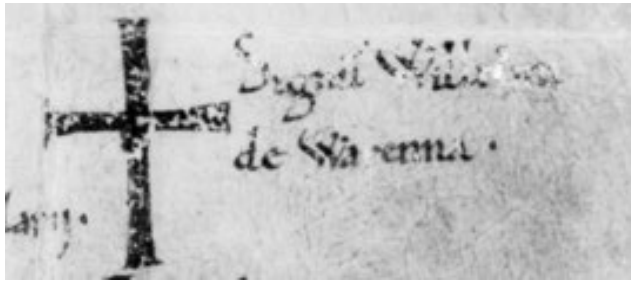 Signū Willelmi
de Warenna.